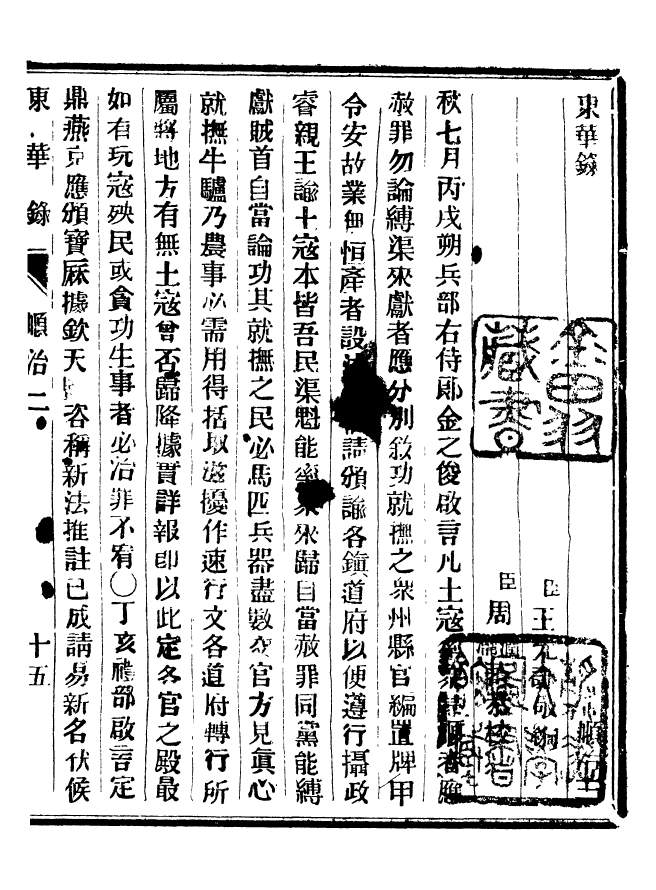 東華錄
臣王先謙敬編
臣周
秋七月丙戌朔兵部右侍郎金之俊啟言凡土寇率眾歸順者應
赦罪勿論縛渠來獻者應分別敘功就撫之眾州縣官編置牌甲
令安故業無恒產者設法請頒諭各鎮道府以便遵行攝政
睿親王諭土寇本皆吾民渠魁能率眾來歸自當赦罪同黨能縛
獻賊首自當論功其就撫之民必馬匹兵器盡數交官方見眞心
就撫牛驢乃農事必需用得括取滋擾作速行文各道府轉行所
屬將地方有無土寇曾否歸降據實詳報卽以此定各官之殿最
如有玩寇殃民或貪功生事者必治罪不宥〇丁亥禮部啟言定
鼎燕京應頒寶厤據欽天監咨稱新法推註已成請易新名伏候
東華錄 順治二 十五